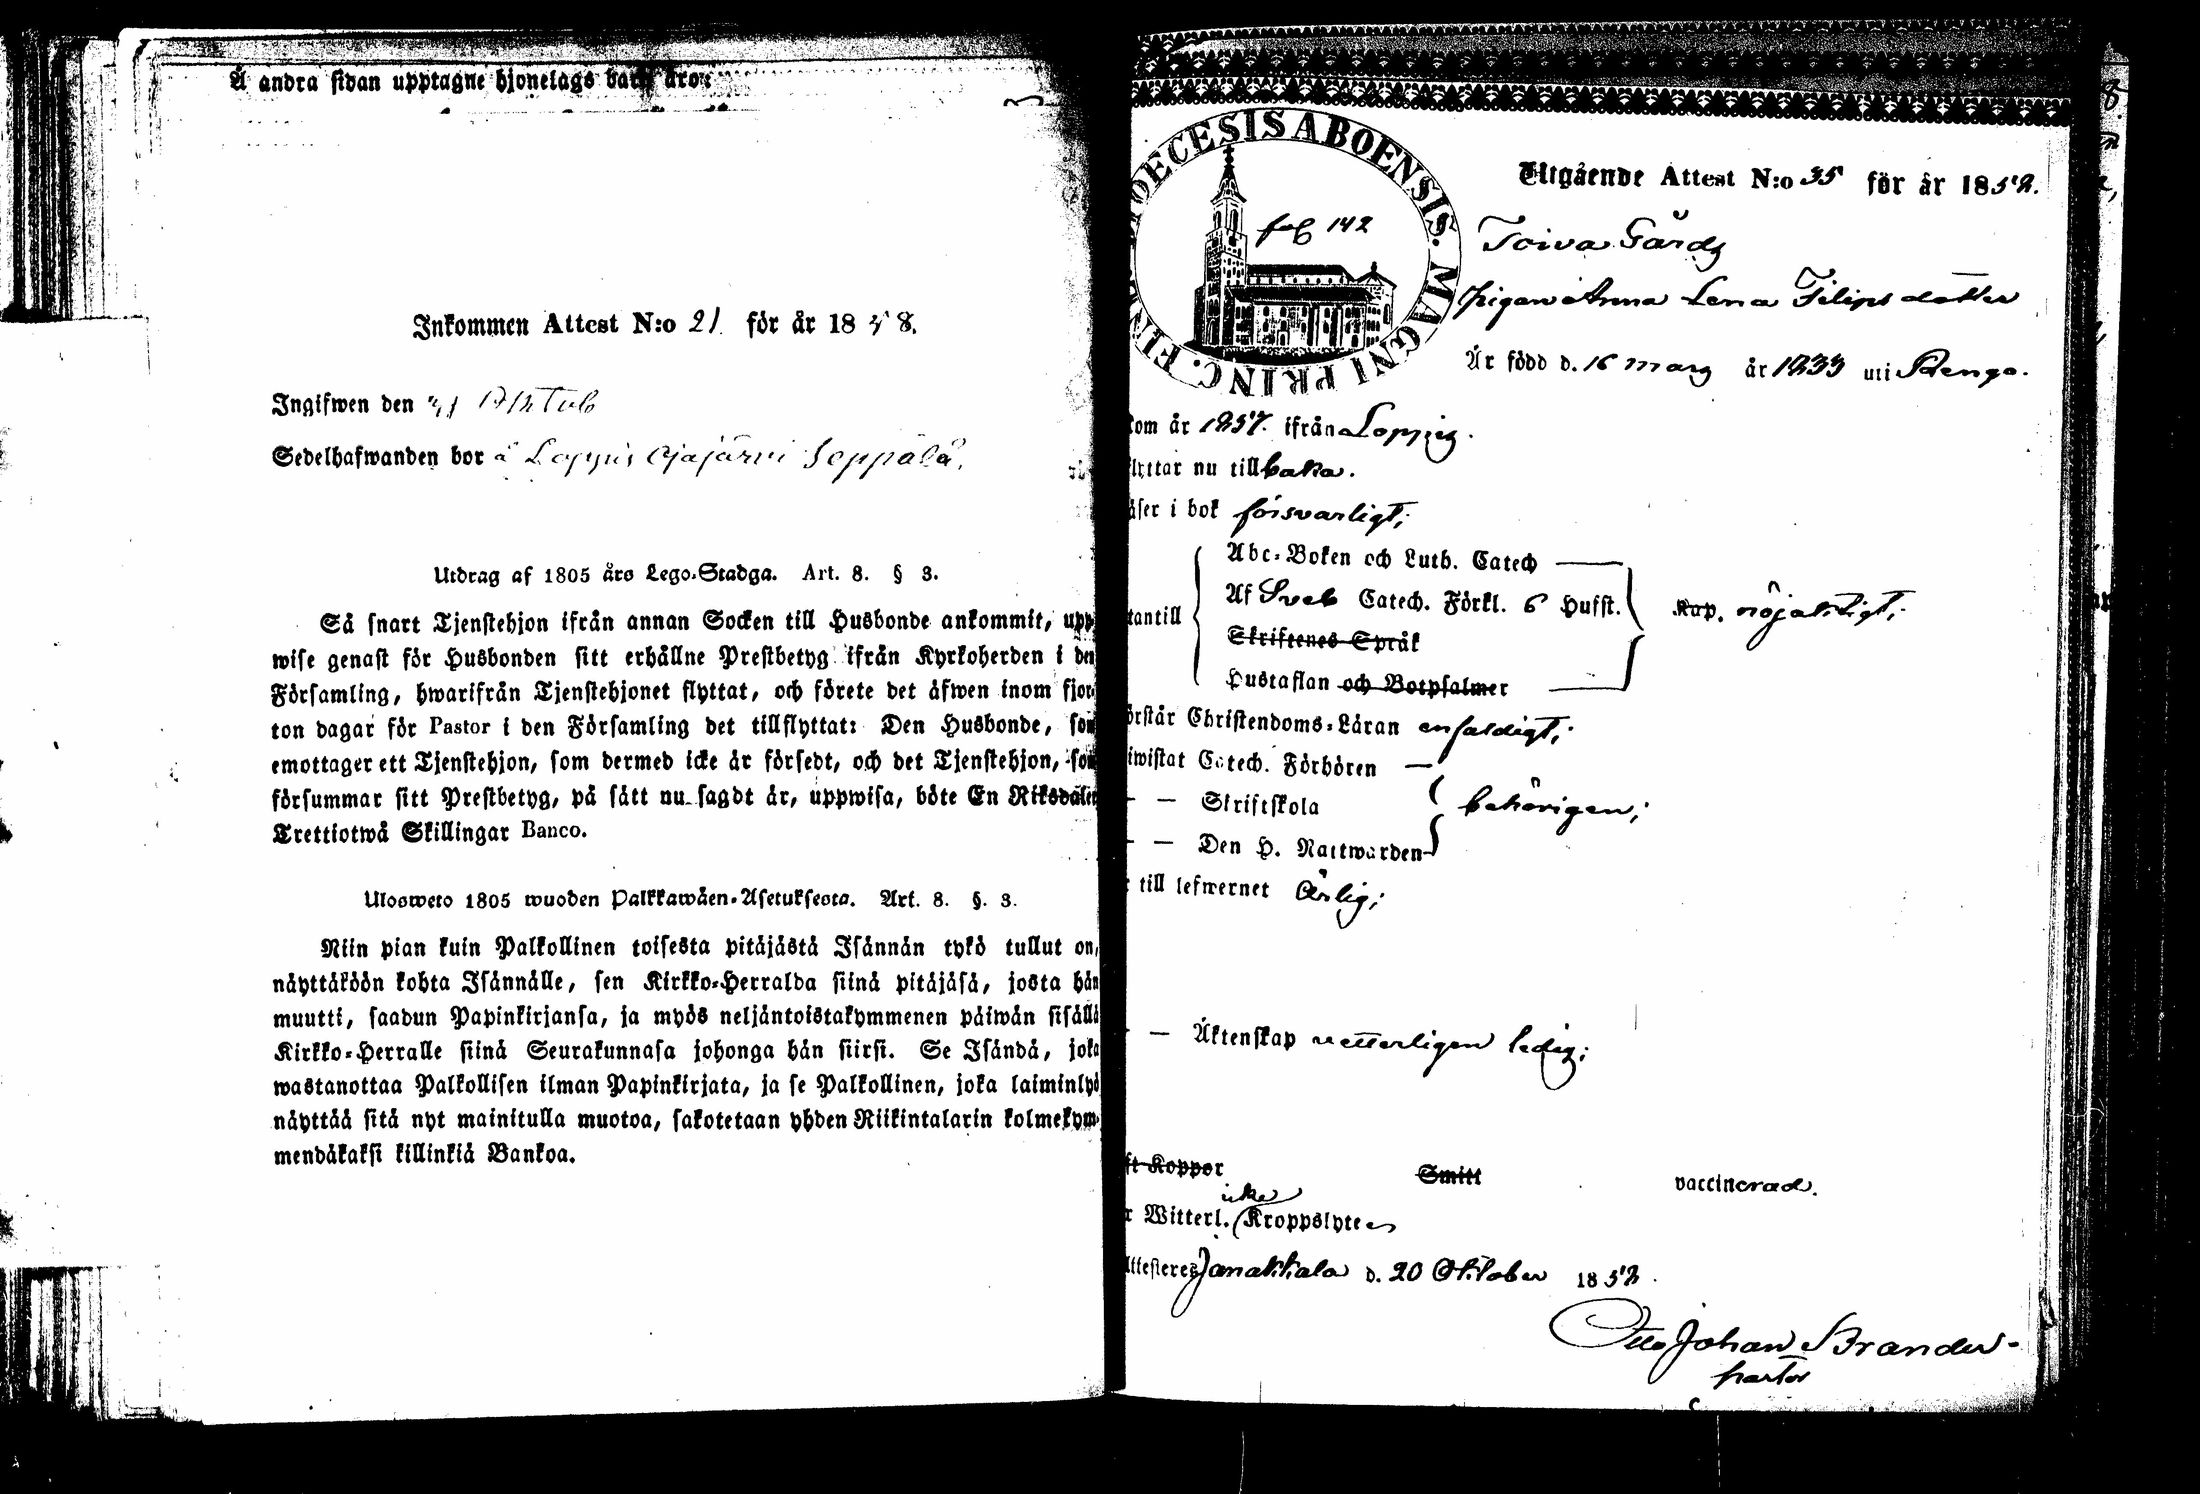 Å andra sidan upptagne hjonelags barn äro:
Inkommen Attest N:o 21 för år 1858.
Ingifwen den 31 Oktob
Sedelhafwanden bor å Loppis Ojajärvi Seppälä.
Utdrag af 1805 års Lego-Stadga. Art. 8. § 3.
Så snart Tjenstehjon ifrån annan Socken till Husbonde ankommit, upp-
wise genast för Husbonden sitt erhållne Prestbetyg ifrån Kyrkoherden i den
Församling, hwarifrån Tjenstehjonet flyttat, och förete det äfwen inom fjor-
ton dagar för Pastor i den Församling det tillflyttat: Den Husbonde, som
emottager ett Tjenstehjon, som dermed icke är försedt, och det Tjenstehjon, som
försummar sitt Prestbetyg, på sätt nu sagdt är, uppwisa, böte En Riksdaler
Trettiotwå Skillingar Banco.
Ulosweto 1805 wuoden Palkkawäen-Asetuksesta. Art. 8. §. 3.
Niin pian kuin Palkollinen toisesta pitäjästä Isännän tykö tullut on,
näyttäköön kohta Isännälle, sen Kirkko-Herralda siinä pitäjäsä, josta hän
muutti, saadun Papinkirjansa, ja myös neljäntoistakymmenen päiwän sisällä
Kirkko-Herralle siinä Seurakunnasa johonga hän siirsi. Se Isändä, joka
wastanottaa Palkollisen ilman Papinkirjata, ja se Palkollinen, joka laiminlyö
näyttää sitä nyt mainitulla muotoa, sakotetaan yhden Riikintalarin kolmekym-
mendäkaksi killinkiä Bankoa.
DIOECESIS ABOENSIS. MAGNI PRINC.
fol 142
Utgående Attest N:o 35 för år 1858.
Toiva Gård
pigan Anna Lena Filips dotter
Är född d. 16 mars år 1833 uti Rengo.
kom år 1857. ifrån Loppis.
flyttar nu tillbaka.
läser i bok försvarligt;
Abc-Boken och Luth. Catech
utantill Af Sveb Catech. Förkl. 6 Hufst. Kap. nöjaktigt;
Skriftenes Språk
Hustaflan och Botpsalmer
förstår Christendoms-Läran enfaldigt;
biwistat Catech. Förhören
— — Skriftskola behörigen;
— — Den H. Nattwarden
är till lefwernet ärlig;
— — Äktenskap vetterligen ledig;
haft Koppor Smitt vaccinerad.
icke
är Witterl. Kroppslyte
Attesteres Janakkala d. 20 Oktober 1858.
Otto Johan Brander
pastor